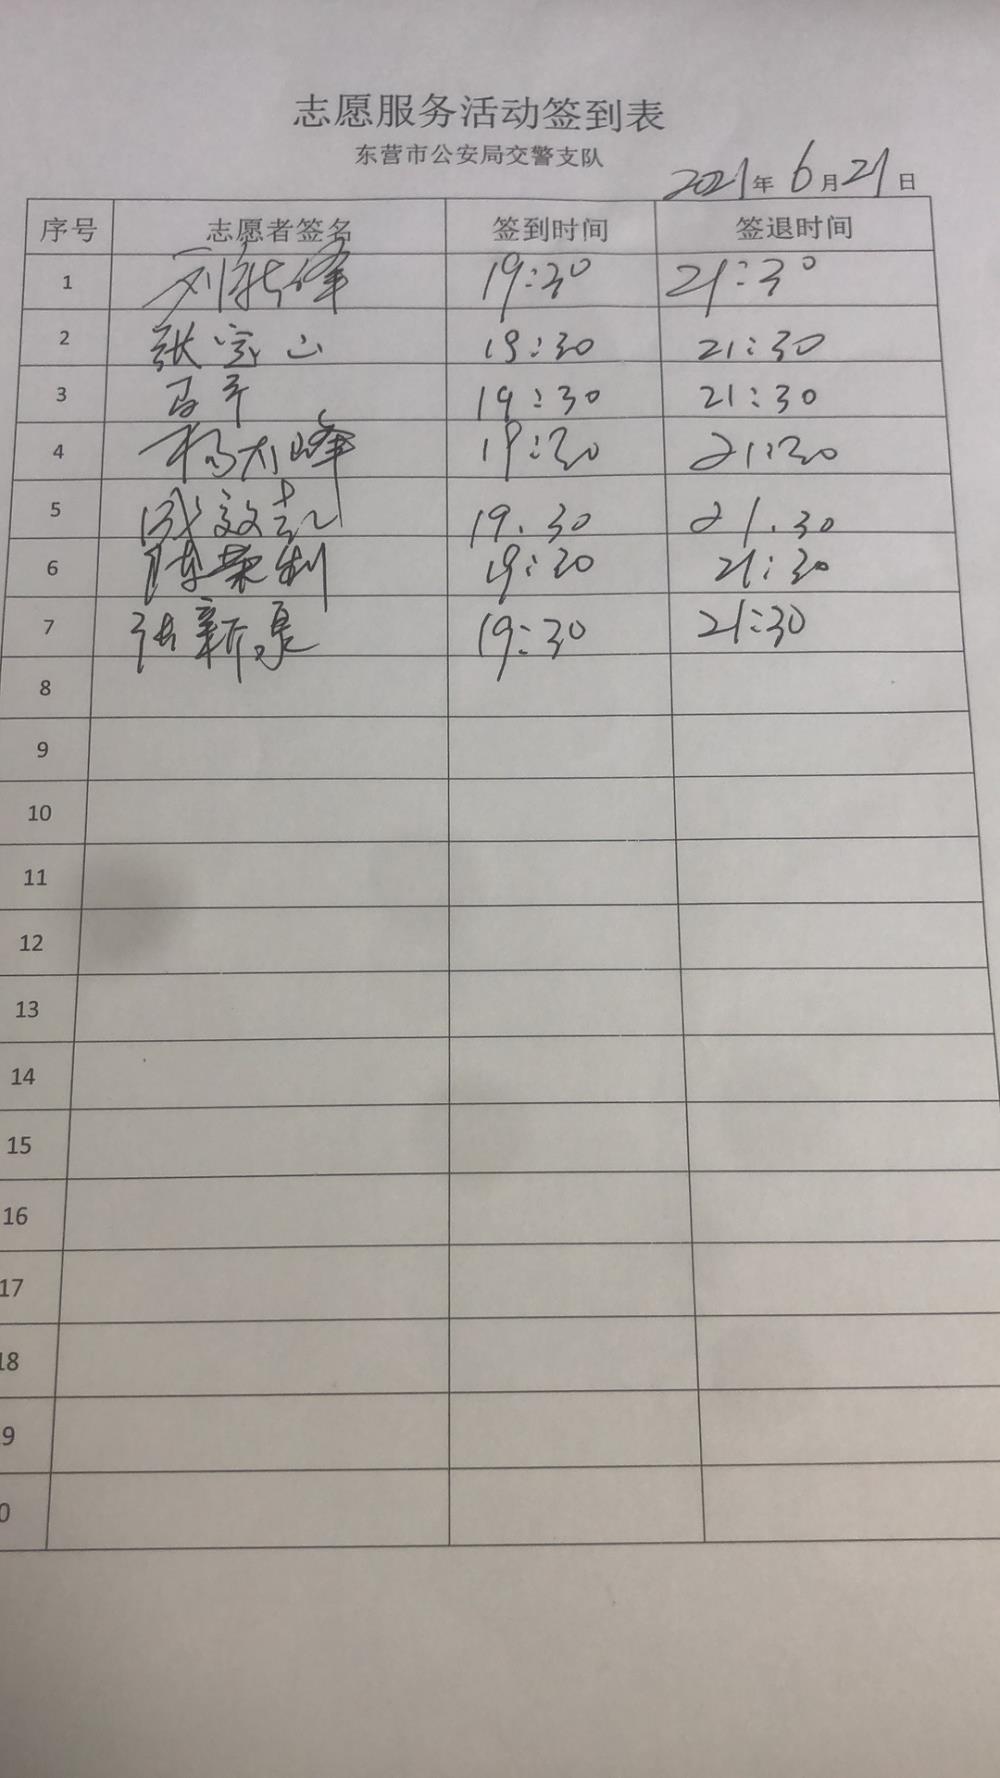 志愿服务活动签到表
东营市公安局交警支队
2021年6月21日
序号 志愿者签名 签到时间 签退时间
1 刘 峰 19:30 21:30
2 张宝山 19:30 21:30
3 19:30 21:30
4 杨 峰 19:30 21:30
5 成文 19.30 21.30
6 陈荣利 19:30 21:30
7 张新泉 19:30 21:30
8
9
10
11
12
13
14
15
16
17
18
9
0